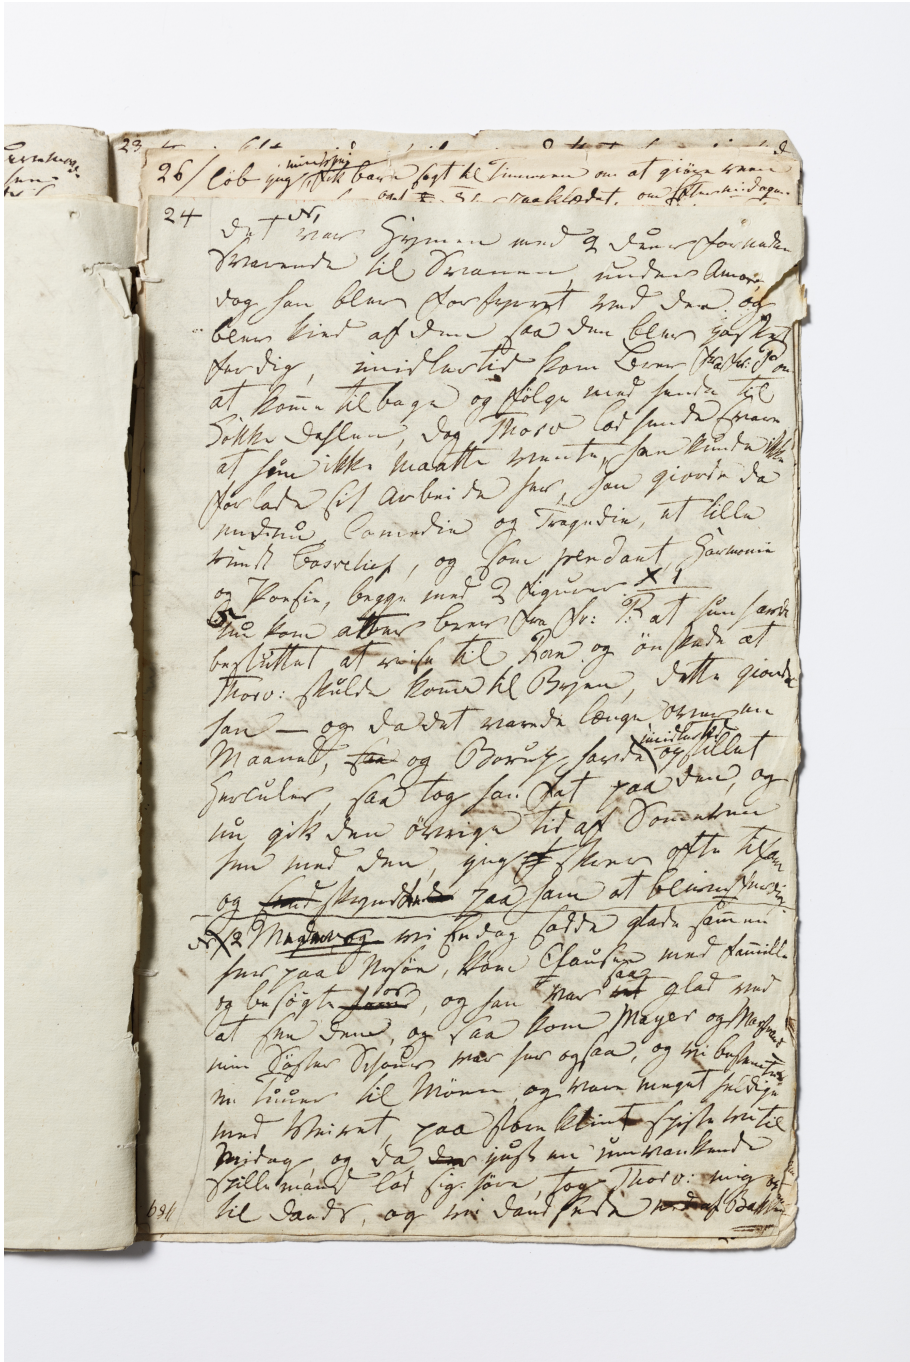 23
26/ løb jeg, fik bare sagt til Tinneren om at giøre
24
det var Hymen med 2 Duer forneden
Svarende til Svanen under Amor,
dog han blev forstyrret ved den og
blev kied af den saa den blev ganske
færdig, imidlertid kom Brev fra Fr: P om
at komme tilbage og følge med hende til
Gökke dahlen, dog Thorv lod hende svare
at hün ikke maatte vente, han kunde ikke
forlade sit Arbeide her, han giorde da
endnu Comedie og Tragedie, et lille
rundt basrelief, og som pendant, Harmonie
og Poesie, begge med 2 figurer X 1
Nu kom atter brev fra Fr: P: at hun havde
besluttet at reise til Rom og önskede at
Thorv: skulde komme til Byen, dette giorde
han — og da det varede længe over en
Maaned, og Borup havde imidlertid opstillet
Hercules, saa tog han fat paa den, og
nu gik den övrige tid af Sommeren
hen med den, jeg skrev ofte til ham
og skyndte paa ham at blive færdig
N X 2 vi Endag sadde glade sammen
her paa Nysöe, kom Clausen med familie
og besögte os, og han var saa glad ved
at see dem, og saa kom Mayer og
min Söster Schouw var her ogsaa, og vi bestemte
en Tuur til Möen og vare meget heldige
med Veiret, paa store klint spiste vi til
Midag og da just en omvankende
Spillemand lod sig höre, tog Thorv: mig op
til dands, og vi dandsede
684